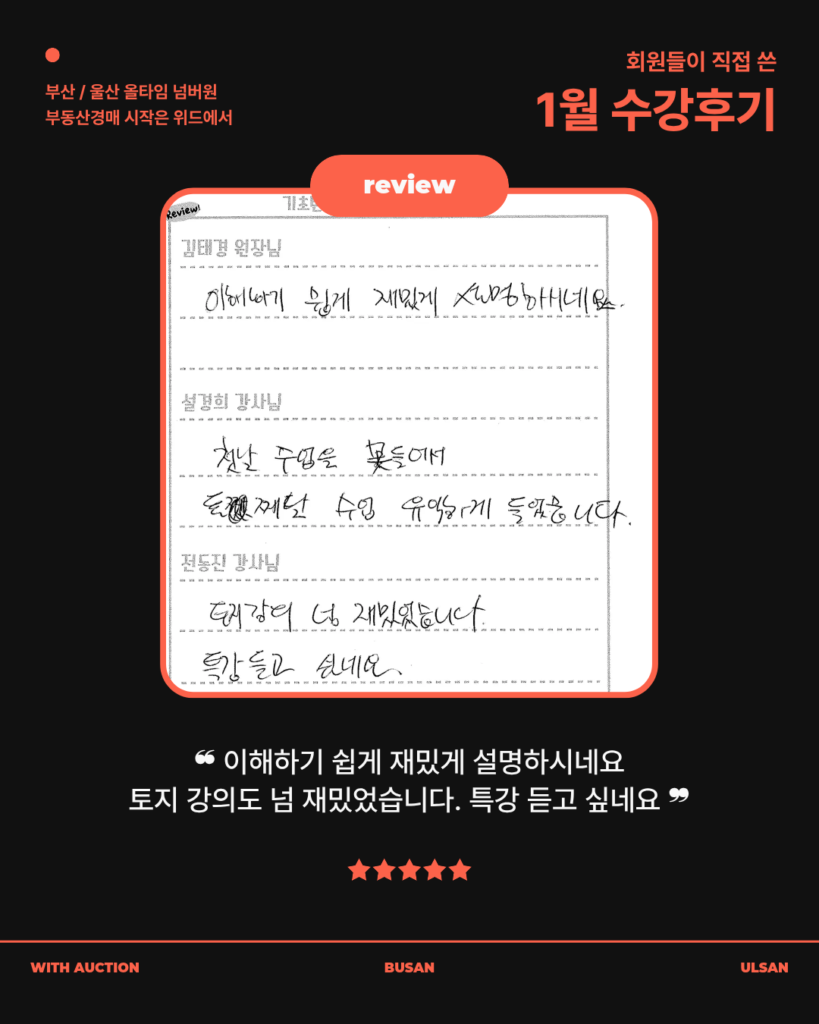 부산 / 울산 올타임 넘버원
부동산경매 시작은 위드에서
회원들이 직접 쓴
1월 수강후기
review
Review!
기초반
김태경 원장님
이해하기 쉽게 재밌게 설명하시네요.
설경희 강사님
첫날 수업을 못들어서
둘째날 수업 유익하게 들었습니다.
전동진 강사님
토지강의 넘 재밌었습니다.
특강 듣고 싶네요.
❝ 이해하기 쉽게 재밌게 설명하시네요
토지 강의도 넘 재밌었습니다. 특강 듣고 싶네요 ❞
WITH AUCTION
BUSAN
ULSAN